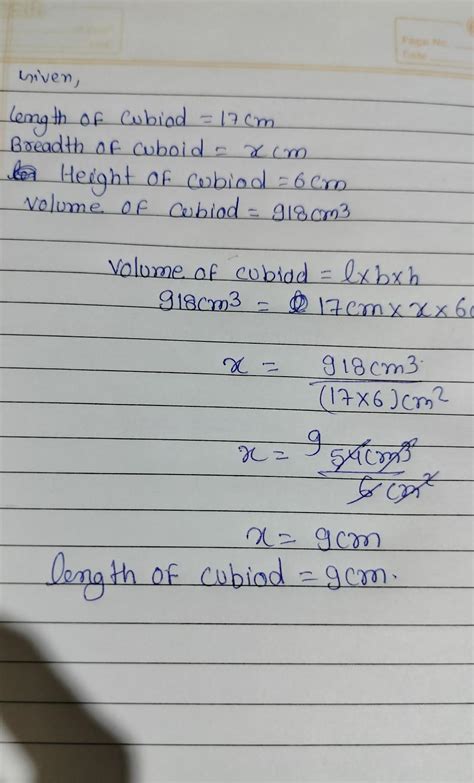 Page No.
Date
Given,
Length of cubiod = 17cm
Breadth of cuboid = x cm
Height of cubiod = 6cm
Volume of cubiod = 918cm3
Volume of cubiod = l×b×h
918cm3 = 17cm × x × 6c
x = 918cm3
(17×6)cm2
x = 9 54cm3
6cm2
x = 9cm
length of cubiod = 9cm.